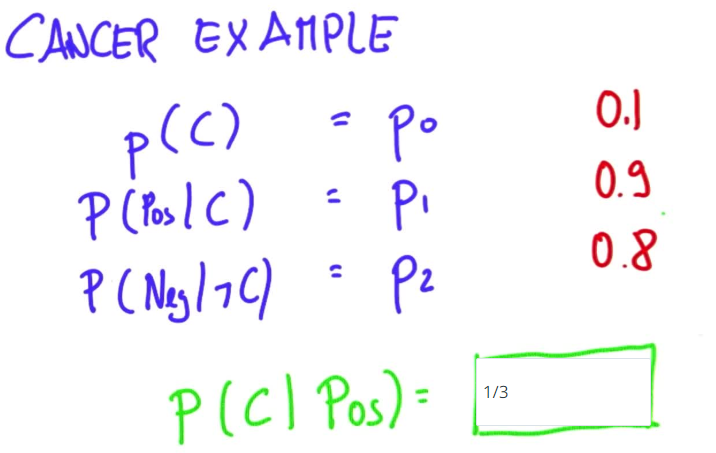 CANCER EXAMPLE
P(C) = P0 0.1
P(Pos|C) = P1 0.9
P(Neg|¬C) = P2 0.8
P(C|Pos) = 1/3